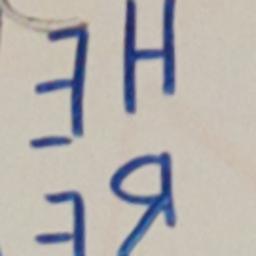 HE
RE